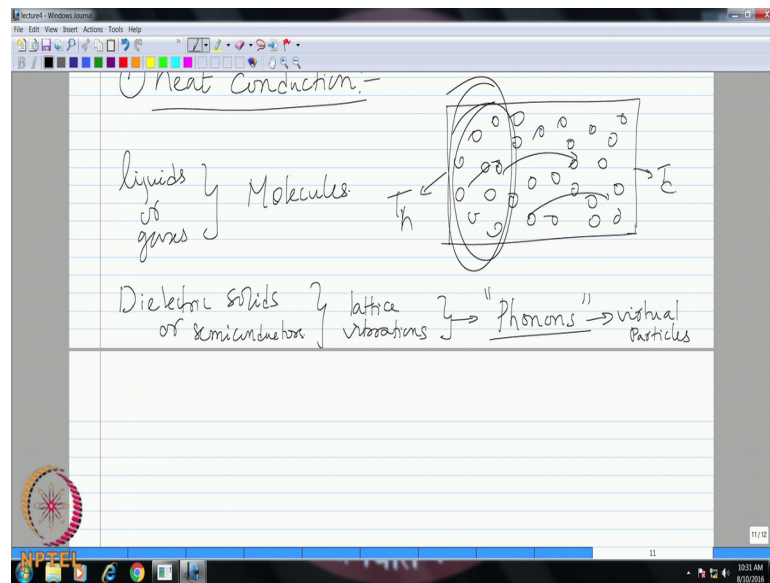 lecture4 - Windows Journal
File Edit View Insert Actions Tools Help
① Heat Conduction:-
liquids
or
gases
Molecules.
Th
Tc
Dielectric solids
or semiconductors
lattice
vibrations
"Phonons"
virtual
Particles
11
11/12
NPTEL
10:31 AM
8/10/2016